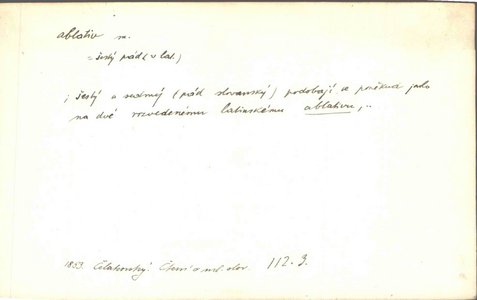 ablativ m.
= šestý pád (v lat.)
; šestý a sedmý (pád slovanský) podobají se poněkud jako
na dvé rozvedenému latinskému ablativu, ..
1853. Čelakovský. Čtení o sr. slov. 112. 3.